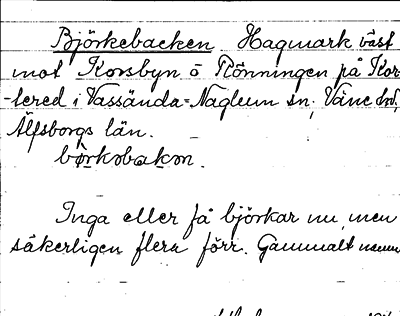 Björkebacken Hagmark väst
mot Korsbyn ö Rönningen på Kor-
-lered i Vassända-Naglum sn, Väne hd,
Älfsborgs län.
börkobakon.
Inga eller få björkar nu, men
säkerligen flera förr. Gammalt namn